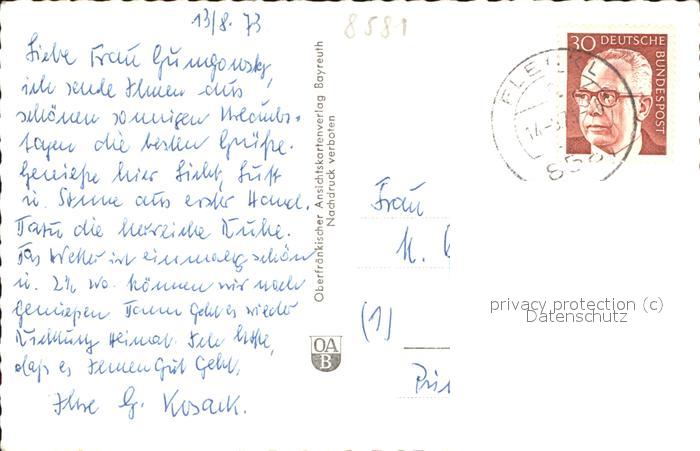 13/8. 73
8581
Liebe Frau Gumgowsky,
ich sende Ihnen aus
schönen sonnigen Urlaubs-
tagen die besten Grüße.
Genieße hier Licht, Luft
u. Sonne aus erster Hand.
Dazu die herrliche Ruhe.
Das Wetter ist einmalig schön
u. 2½ Wo. können wir noch
genießen Dann geht es wieder
Richtung Heimat. Ich hoffe,
daß es Ihnen Gut Geht,
Ihre G. Kosack.
Oberfränkischer Ansichtskartenverlag Bayreuth
Nachdruck verboten
OA
B
30 DEUTSCHE
BUNDESPOST
858
Frau
(1)
privacy protection (c)
Datenschutz